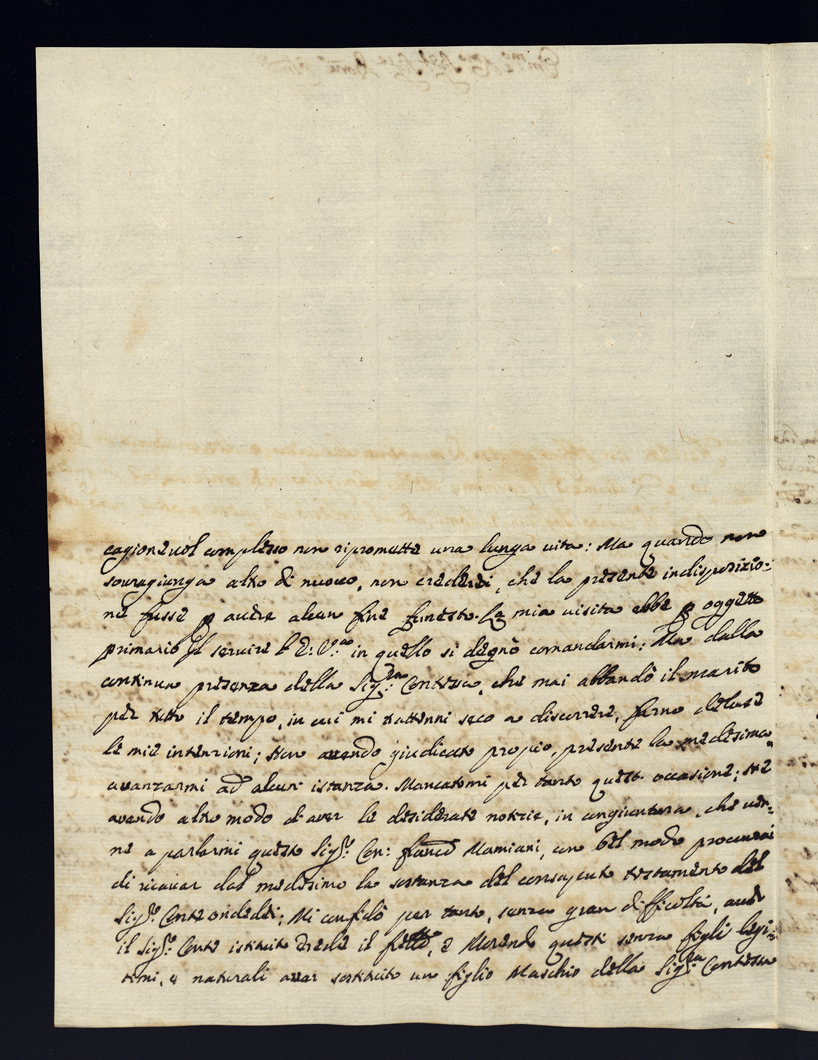 cagionevol complesso non ripromette una lunga vita: Ma quando non
sovragiunga altro di nuovo, non crederei, che la presente indisposizio-
ne fusse p avere alcun fine funesto. La mia visita ebbe p oggetto
primario il servire l'E: V.ra in quello si degnò comandarmi; Ma dalla
continua presenza della Sig.ra Contessa, che mai abbandò il marito
per tutto il tempo, in cui mi trattenni seco a discorrere, furno deluse
le mie intenzioni; Non avendo giudicato propio, presente la medesima
avanzarmi ad alcun' istanza. Mancatami per tanto questa occasione; Nè
avendo altro modo di aver le desiderate notizie, in congiuntura, che ven-
ne a parlarmi questo Sig.r Con: Franc.o Mamiani, con bel modo procurai
di ricavar dal medesimo la sostanza del consaputo testamento del
Sig.r Conte Ondedei; Mi confidò per tanto, senza gran difficoltà, aver
il Sig.r Conte istituito Erede il frello, e Morendo questi senza figli legi-
timi, e naturali aver sostituito un figlio Maschio della Sig.ra Contessa